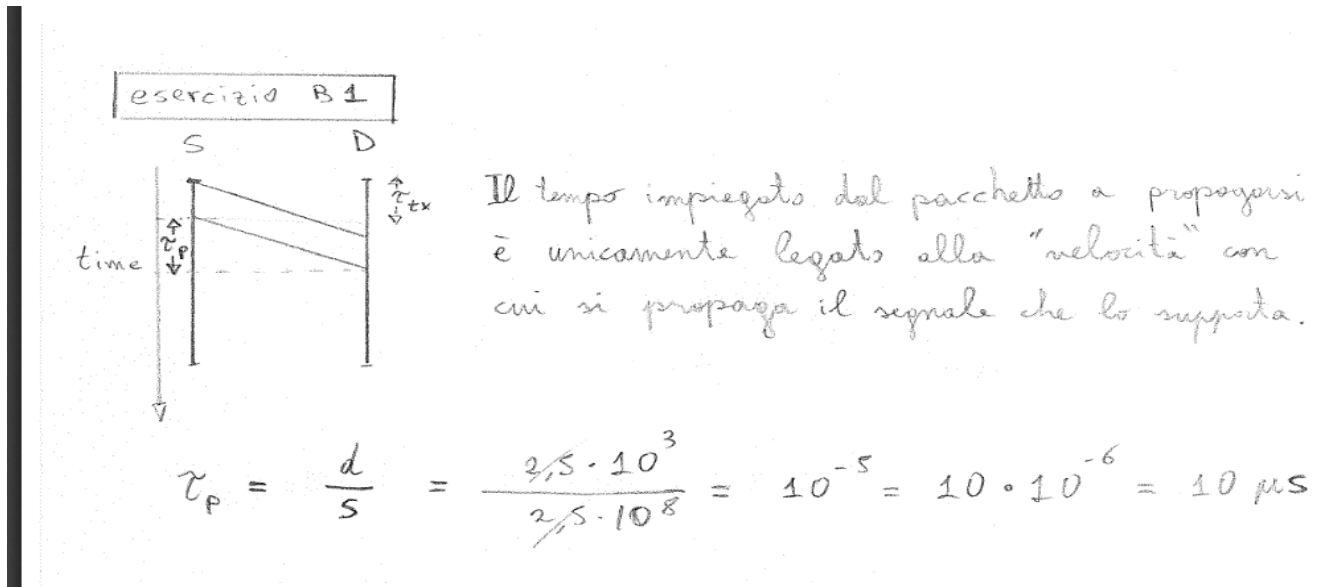 esercizio B1
S D
τtx
τp
time
Il tempo impiegato dal pacchetto a propagarsi
è unicamente legato alla "velocità" con
cui si propaga il segnale che lo supporta.
τp = d/s = 2,5 · 10^3 / 2,5 · 10^8 = 10^-5 = 10 · 10^-6 = 10 μs